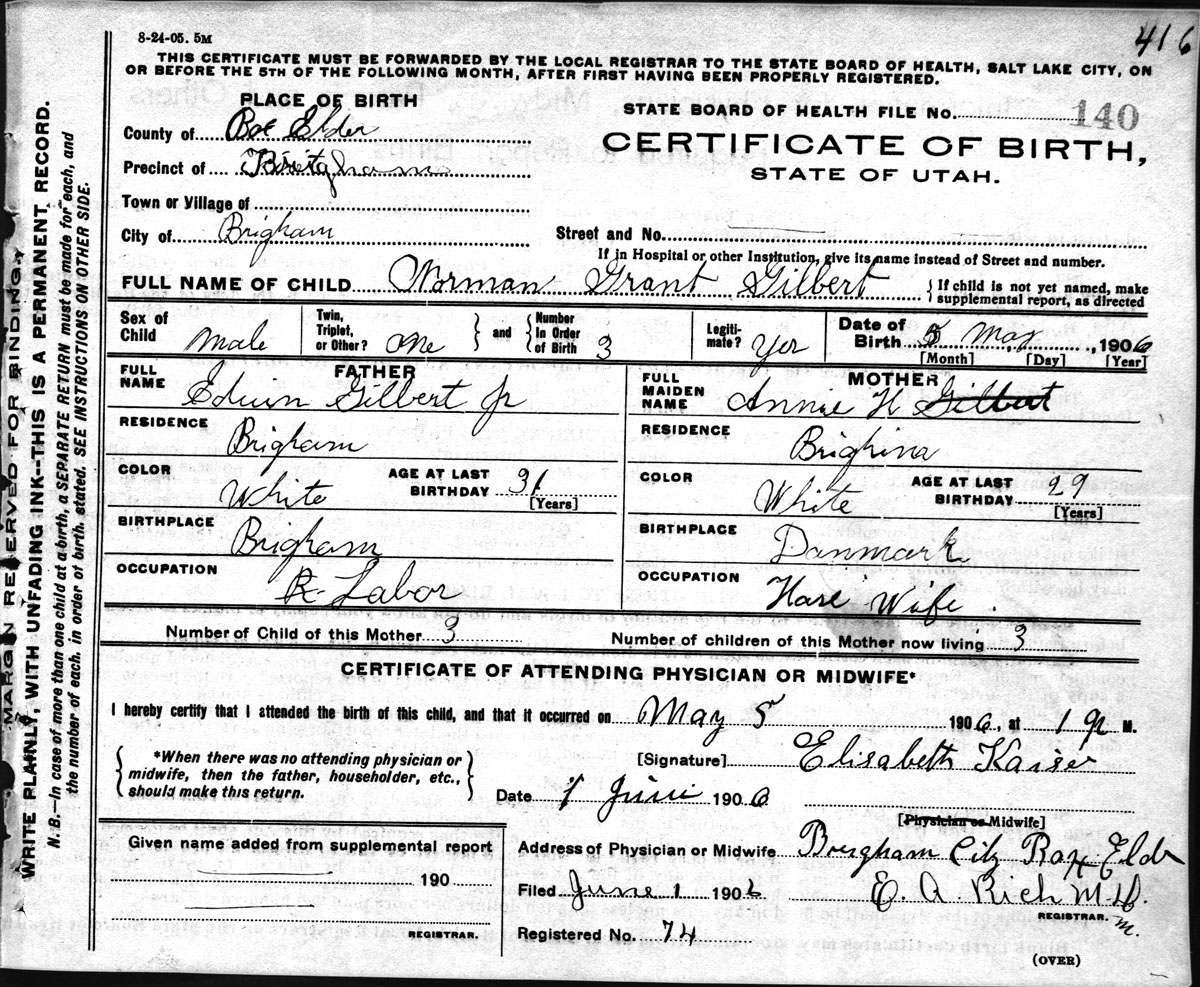 416
8-24-05. 5M
THIS CERTIFICATE MUST BE FORWARDED BY THE LOCAL REGISTRAR TO THE STATE BOARD OF HEALTH, SALT LAKE CITY, ON
OR BEFORE THE 5TH OF THE FOLLOWING MONTH, AFTER FIRST HAVING BEEN PROPERLY REGISTERED.
PLACE OF BIRTH
STATE BOARD OF HEALTH FILE No. 140
County of Box Elder
CERTIFICATE OF BIRTH,
STATE OF UTAH.
Precinct of Brigham
Town or Village of
City of Brigham
Street and No.
If in Hospital or other Institution, give its name instead of Street and number.
FULL NAME OF CHILD Norman Grant Gilbert
{If child is not yet named, make
supplemental report, as directed
Sex of Child Male
Twin, Triplet, or Other? One } and { Number In Order of Birth 3
Legiti- mate? Yes
Date of Birth 5 May, 1906
[Month] [Day] [Year]
FATHER
FULL NAME Edwin Gilbert Jr
MOTHER
FULL MAIDEN NAME Annie H Gilbert
RESIDENCE Brigham
RESIDENCE
COLOR White
AGE AT LAST BIRTHDAY 31 [Years]
COLOR White
AGE AT LAST BIRTHDAY 29 [Years]
BIRTHPLACE Brigham
BIRTHPLACE Danmark
OCCUPATION Labor
OCCUPATION Wife.
Number of Child of this Mother 3
Number of children of this Mother now living 3
CERTIFICATE OF ATTENDING PHYSICIAN OR MIDWIFE*
I hereby certify that I attended the birth of this child, and that it occurred on May 5 1906, at 1 M.
{*When there was no attending physician or
midwife, then the father, householder, etc.,
should make this return.}
[Signature] Elisabeth Kaiser
Date 1 Juni 1906
[Physician or Midwife]
Given name added from supplemental report
190
REGISTRAR.
Address of Physician or Midwife Bregham Citz Box Elder
Filed June 1 1906
E. A. Rich M.D.
REGISTRAR.
m.
Registered No. 74
(OVER)
MARGIN RESERVED FOR BINDING
WRITE PLAINLY, WITH UNFADING INK--THIS IS A PERMANENT RECORD.
N. B.—In case of more than one child at a birth, a SEPARATE RETURN must be made for each, and
the number of each. in order of birth. stated. SEE INSTRUCTIONS ON OTHER SIDE.